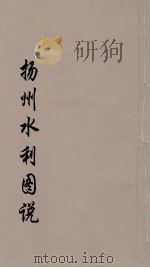 研狗
扬州水利图说
mtoou.info mtoou.info